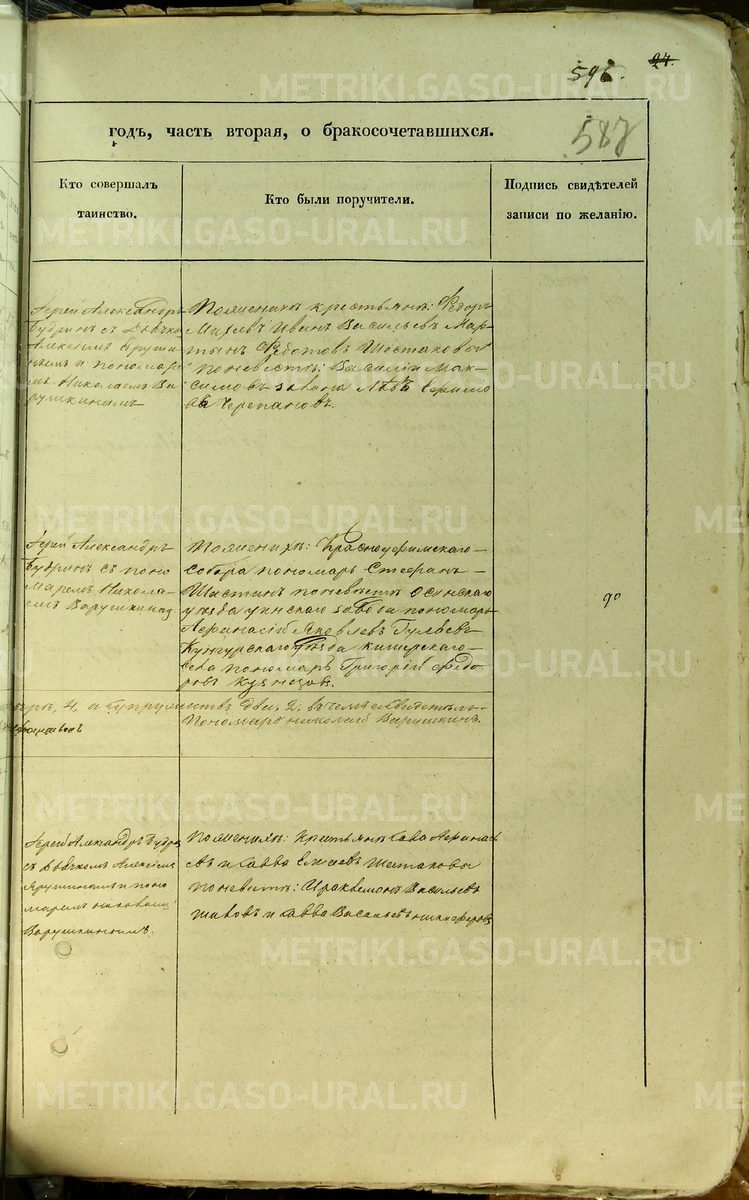 596. 24.
587
годъ, часть вторая, о бракосочетавшихся.
Кто совершалъ таинство.
Кто были поручители.
Подпись свидѣтелей записи по желанію.
Іерей Александръ
Будринъ съ Дьячко
Алексѣемъ
и пономаре
мъ Николаемъ Ва
рушкинымъ
Поженихѣ крестьяне: Ѳедоръ
Иванъ Васильевъ Мар
тынъ Ѳедотовъ Шестаковы
поневѣстѣ: Василій Мак
симовъ Левъ
Черепановъ.
Іерей Александръ
Будринъ съ поно
маремъ Никола
емъ Варушкинымъ
Поженихѣ: Красноуфимскаго
собора пономарь Стефанъ
поневѣстѣ Осинскаго
уѣзда завода пономарь
Афанасій Яковлевъ
Кунгурскаго уѣзда
села пономарь Григорій Ѳедо
ровъ
4, а супружествъ два, 2, въ чемъ свидѣтель
Пономарь николай Варушкинъ.
Іерей Александръ Будри
съ дьячкомъ Алексѣемъ
и поно
маремъ николаемъ
Варушкинымъ.
поженихѣ: Крестьяне Сава Афанась
евъ и Савва Шестаковы
поневѣстѣ: Васильевъ
и Савва Васильевъ никифоровъ
METRIKI.GASO-URAL.RU